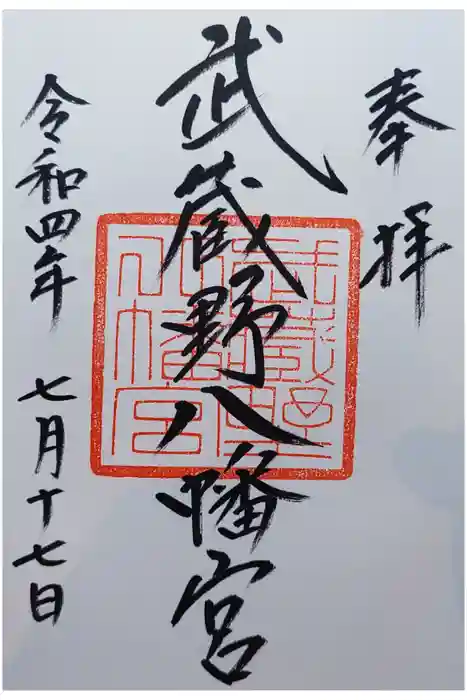 奉拝
武蔵野八幡宮
武蔵野八幡宮
令和四年 七月十七日